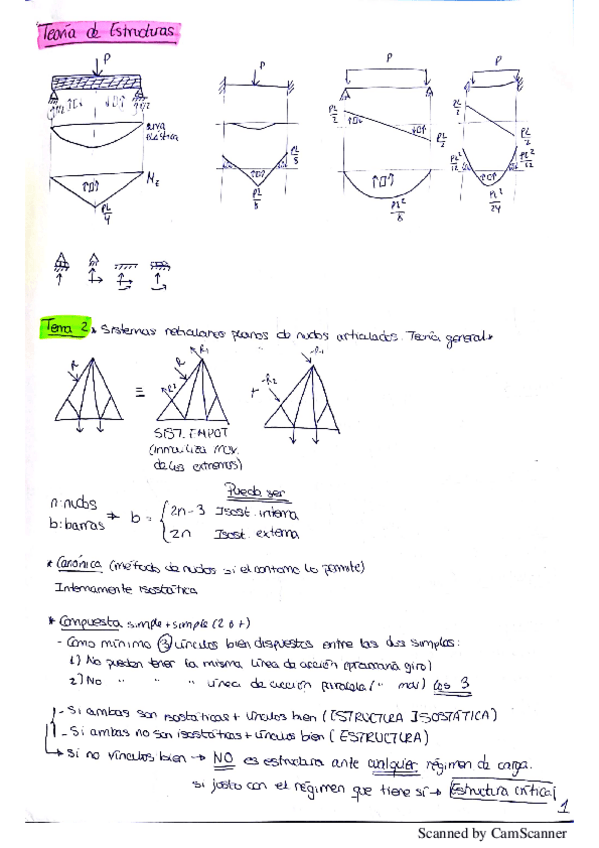 Teoría de Estructuras
P
P
P
P
curva
elástica
M_F
PL/4
PL/8
PL/8
PL/2
PL/2
PL²/8
PL/2
PL/2
PL²/12
PL²/12
PL²/24
Tema 2 * Sistemas reticulares planos de nudos articulados. Teoría general *
R
≡
R
R1
R2
+
-R1
-R2
SIST. EMPOT
(inmoviliza mov.
de los extremos)
Puede ser
n: nudos
b: barras
→ b = { 2n-3 Isost. interna
2n Isost. externa
* Canónica (método de nudos si el contorno lo permite)
Internamente isostática
* Compuesta simple + simple (2 o +)
- Como mínimo 3 vínculos bien dispuestos entre las dos simples:
1) No pueden tener la misma línea de acción (provocaría giro)
2) No " " " línea de acción paralela (" mov) los 3
- Si ambas son isostáticas + vínculos bien (ESTRUCTURA ISOSTÁTICA)
- Si ambas no son isostáticas + vínculos bien (ESTRUCTURA)
→ Si no vínculos bien → NO es estructura ante cualquier régimen de carga.
si justo con el régimen que tiene sí → Estructura crítica
1
Scanned by CamScanner